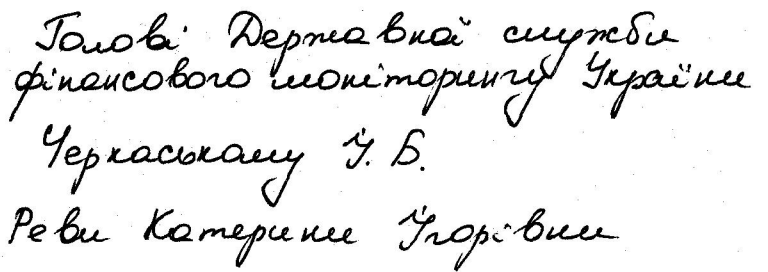 Голові Державної служби
фінансового моніторингу України
Черкаському І. Б.
Реви Катерини Ігорівни